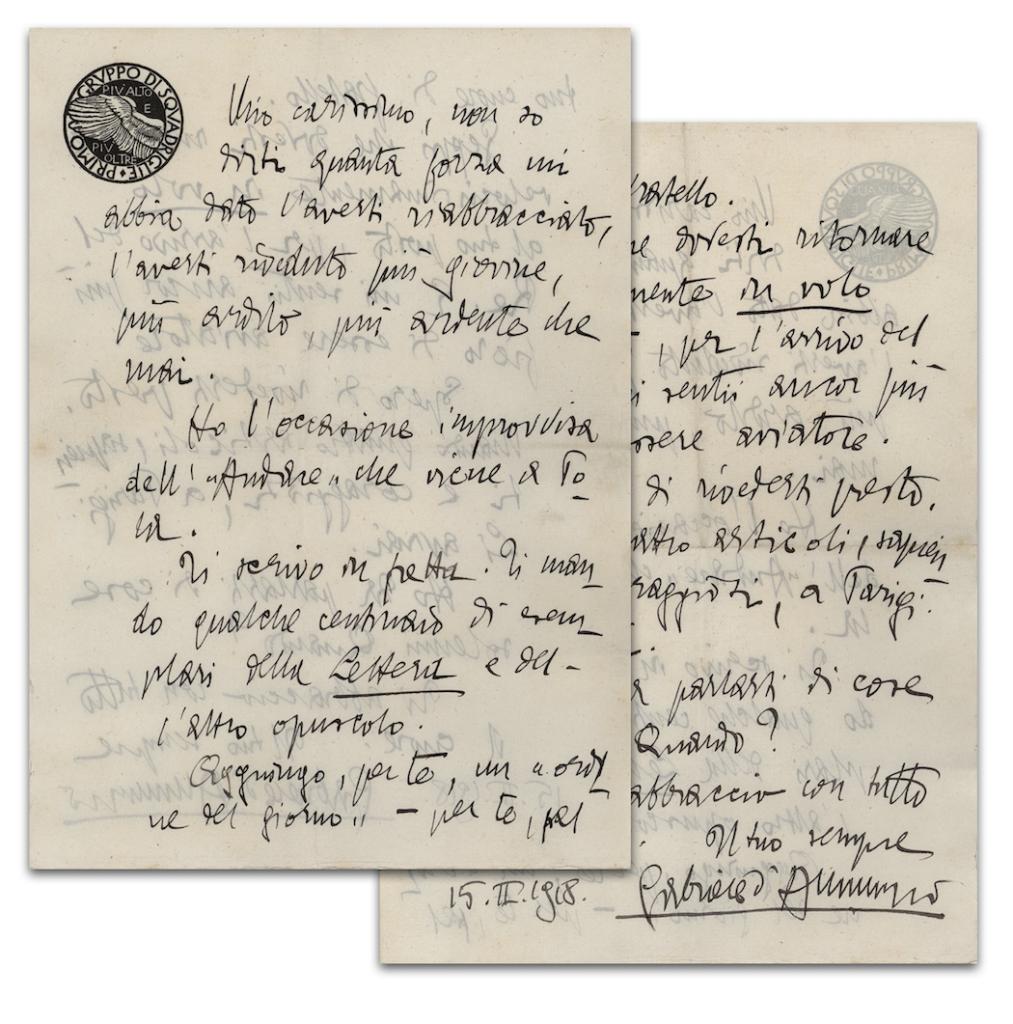 PRIMO GRVPPO DI SQVADRIGLIE
PIV' ALTO
E
PIV'
OLTRE
Mio carissimo, non so
dirti quanta forza mi
abbia dato l'averti riabbracciato,
l'averti riveduto più giovine,
più ardito, più ardente che
mai.
Ho l'occasione improvvisa
dell'"Andare" che viene a
Ti scrivo in fretta. Ti man_
do qualche centinaio di esem_
plari della Lettera e del-
l'altro opuscolo.
Aggiungo, per te, un "ordi
ne del giorno" – per te, pel
ratello.
e dovesti ritornare
mente in volo
, per l'arrivo del
i sentii ancor più
ssere aviatore.
di rivederti presto.
attro articoli, sapien
raggiosi, a Parigi.
a parlarti di cose
Quando?
abbraccio con tutto
Il tuo sempre
15.II.1918. Gabriele d'Annunzio